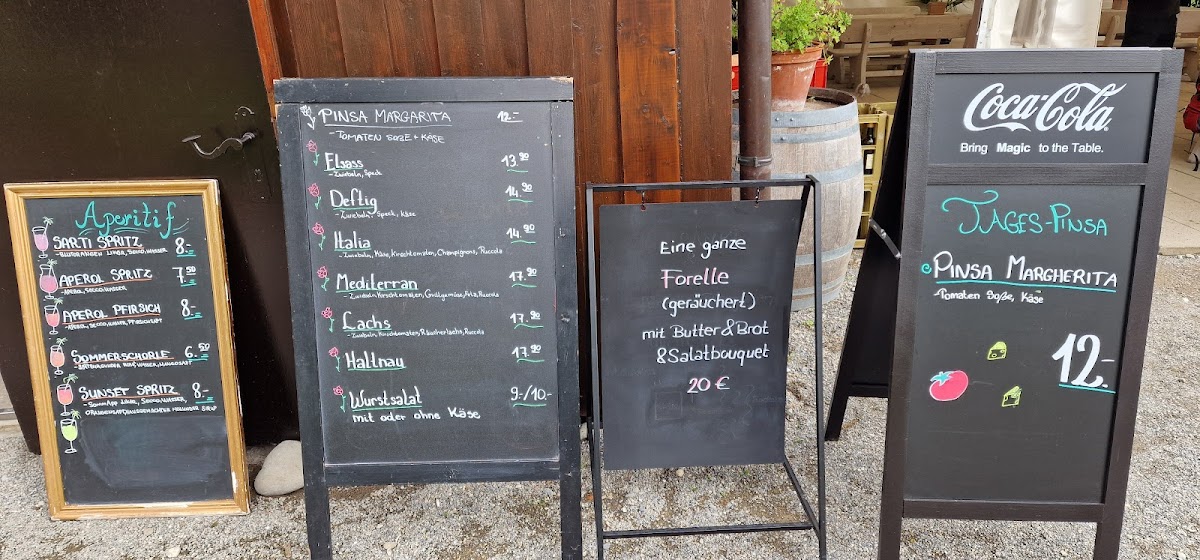 Aperitif
SARTI SPRITZ 8.-
APEROL SPRITZ 7.50
APEROL, SECCO, WASSER
APEROL PFIRSICH 8.-
APEROL, SECCO, WASSER, PFIRSICHSAFT
SOMMERSCHORLE 6.50
SUNSET SPRITZ 8.-
PINSA MARGARITA 12.-
- TOMATEN SOßE + KÄSE
Elsass 13.90
- Zwiebeln, Speck
Deftig 14.90
- Zwiebeln, Speck, Käse
Italia 14.90
- Zwiebeln, Käse, Kirschtomaten, Champignons, Ruccola
Mediterran 17.90
- Zwiebeln, Kirschtomaten, Grillgemüse, Feta, Ruccola
Lachs 17.90
- Zwiebeln, Kirschtomaten, Räucherlachs, Ruccola
Haltnau 17.90
Wurstsalat 9-/10.-
mit oder ohne Käse
Eine ganze
Forelle
(geräuchert)
mit Butter & Brot
& Salatbouquet
20 €
Coca-Cola
Bring Magic to the Table.
TAGES-PINSA
PINSA MARGHERITA
Tomaten Soße, Käse
12.-